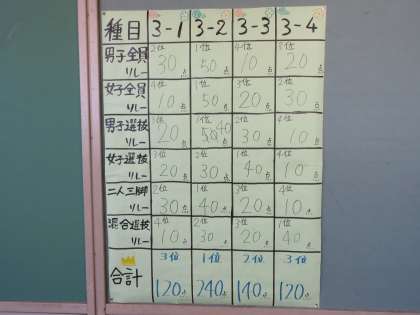 種目 3-1 3-2 3-3 3-4
男子全員リレー 2位 30点 1位 50点 4位 10点 3位 20点
女子全員リレー 4位 10点 1位 50点 3位 20点 2位 30点
男子選抜リレー 3位 20点 1位 40点 2位 30点 4位 10点
女子選抜リレー 3位 20点 2位 30点 1位 40点 4位 10点
二人三脚リレー 2位 30点 1位 40点 3位 20点 4位 10点
混合選抜リレー 4位 10点 2位 30点 3位 20点 1位 40点
3位 1位 2位 3位
合計 120点 240点 140点 120点